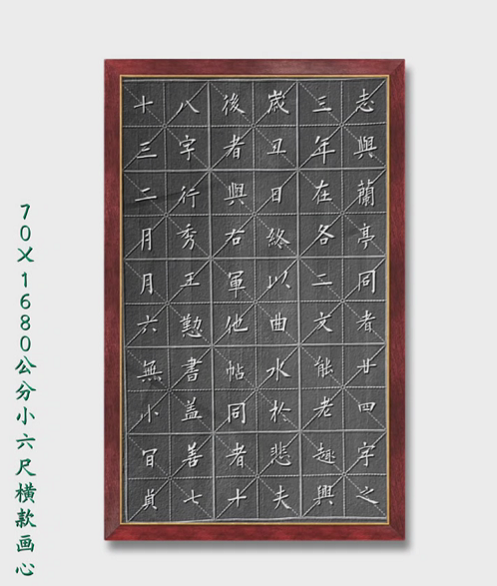 志與蘭亭同者廿四字之
三年在各二文能老趣興
歲丑日終以曲水於悲夫
後者興右軍他帖同者十
八字行秀王懃書蓋善七
十三二月月六無小冒貞
70X1680公分小六尺横款画心